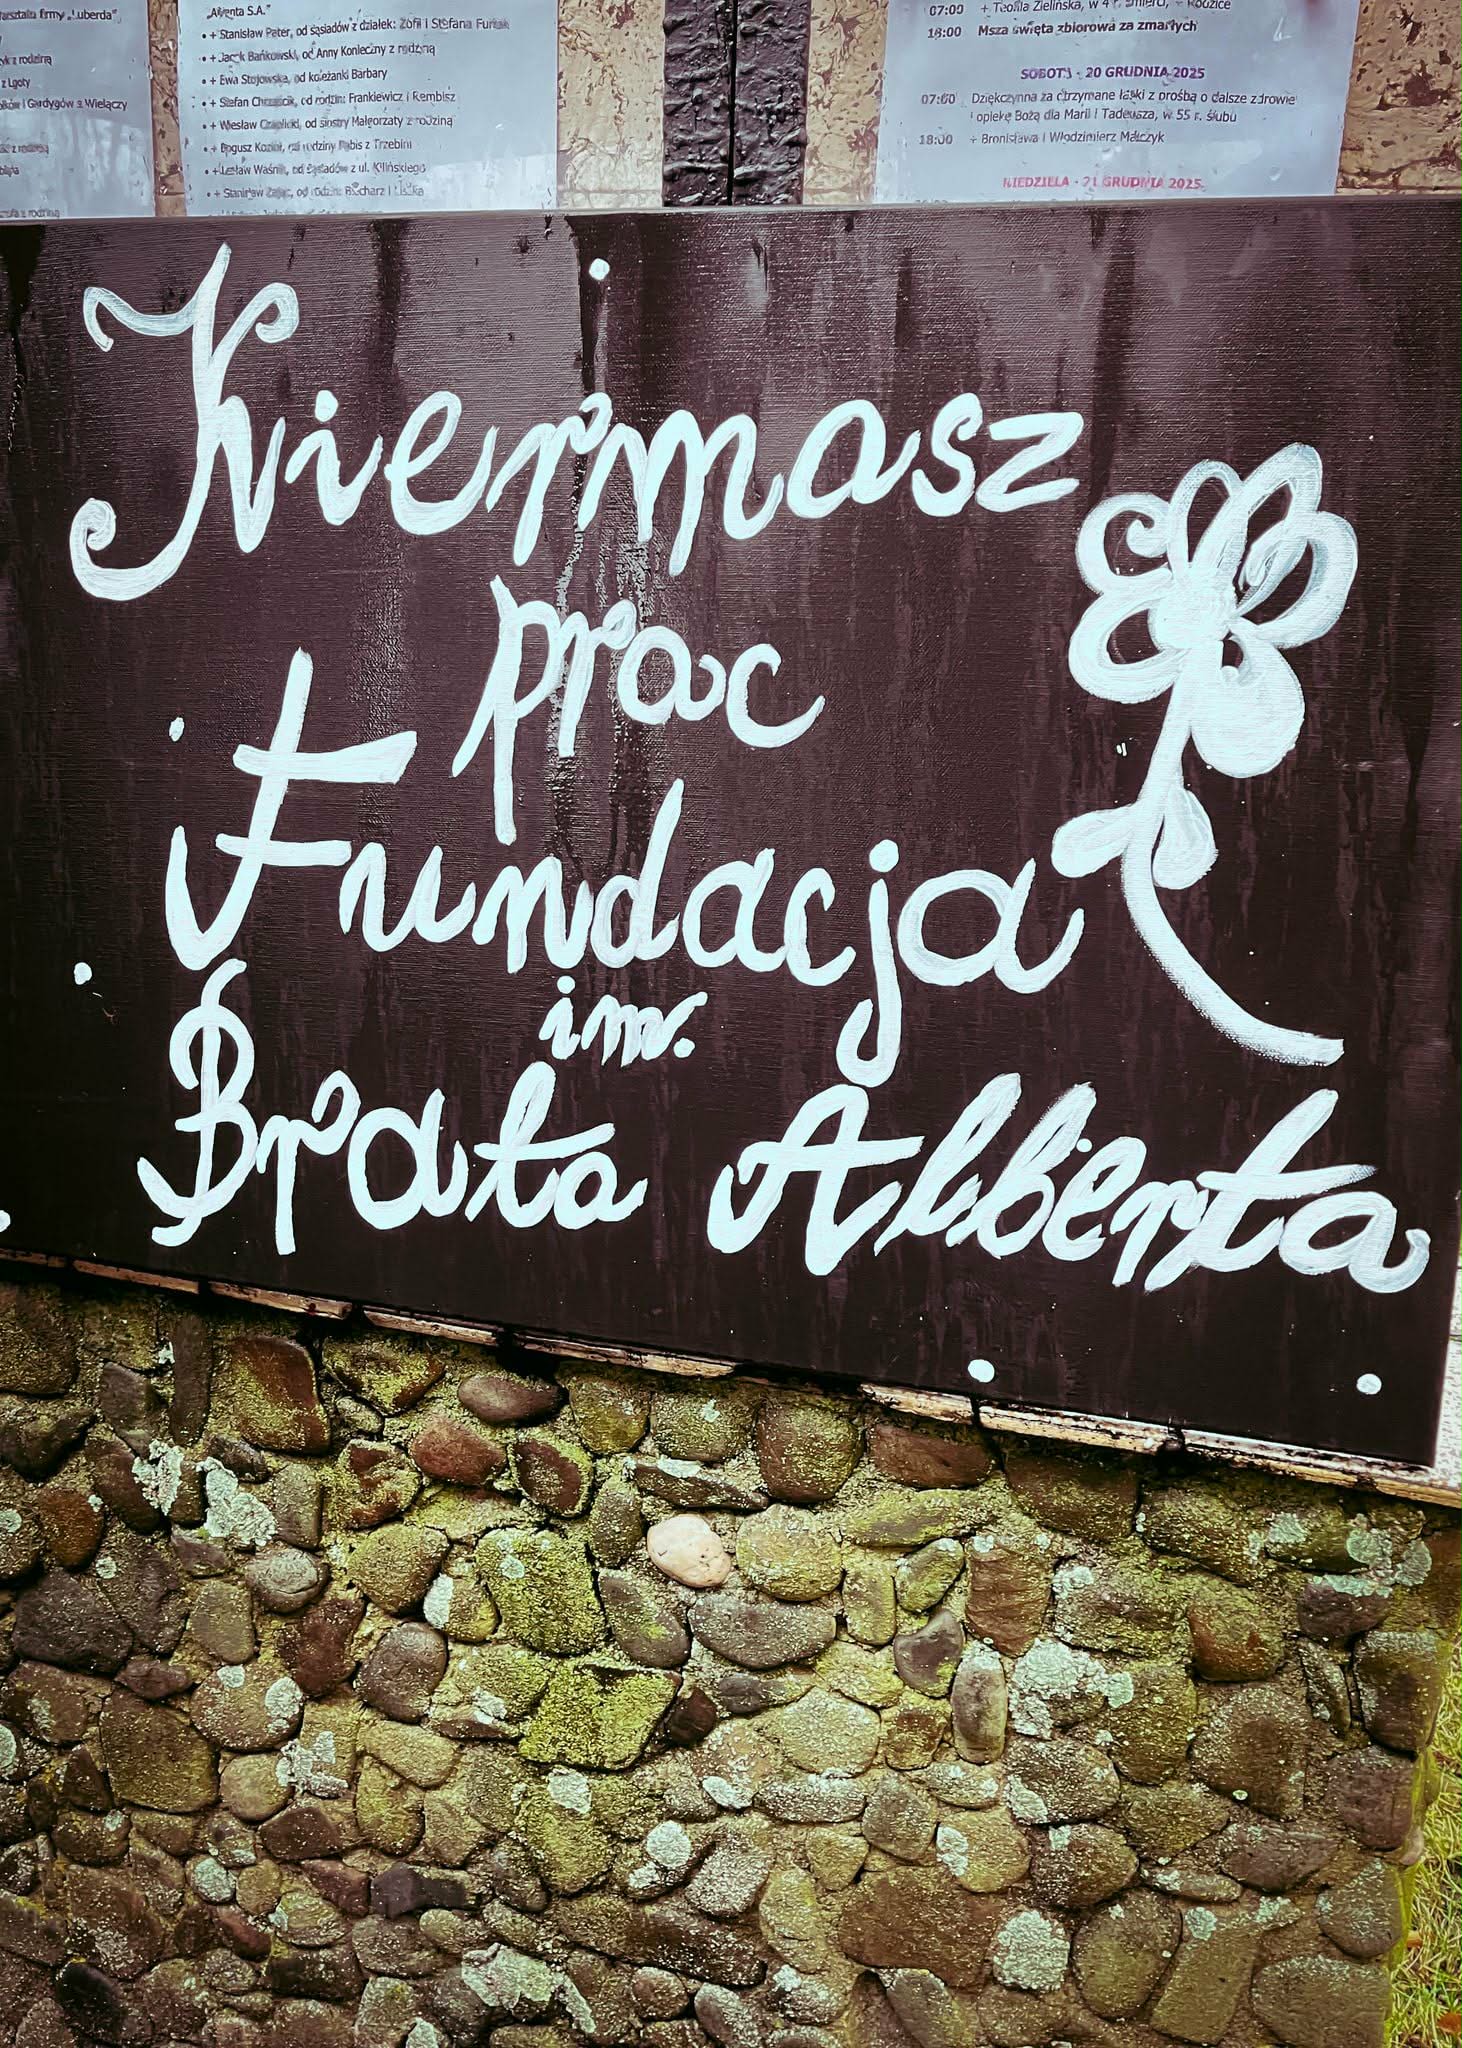 "Alventa S.A."
• + Stanisław Peter, od sąsiadów z działek: Zofii i Stefana Furtak
• + Jacek Bańkowski, od Anny Konieczny z rodziną
• + Ewa Stojowska, od koleżanki Barbary
• + Stefan Chrząścik, od rodzin: Frankiewicz i Rembisz
• + Wiesław Czaplicki, od siostry Małgorzaty z rodziną
• + Bogusz Kozioł, od rodziny Babis z Trzebini
• + Lesław Waśnik, od sąsiadów z ul. Kilińskiego
• + Stanisław Zając, od rodzin:
z rodziną
z Lgoty
i Gardygów z Wielączy
07:00 + Teofila Zielińska, w
18:00 Msza święta zbiorowa za zmarłych
SOBOTA - 20 GRUDNIA 2025
07:00 Dziękczynna za otrzymane łaski z prośbą o dalsze zdrowie
i opiekę Bożą dla Marii i Tadeusza, w 55 r. ślubu
18:00 + Bronisława i Włodzimierz Małczyk
NIEDZIELA - 21 GRUDNIA 2025
Kiermasz
prac
Fundacja
im.
Brata Alberta